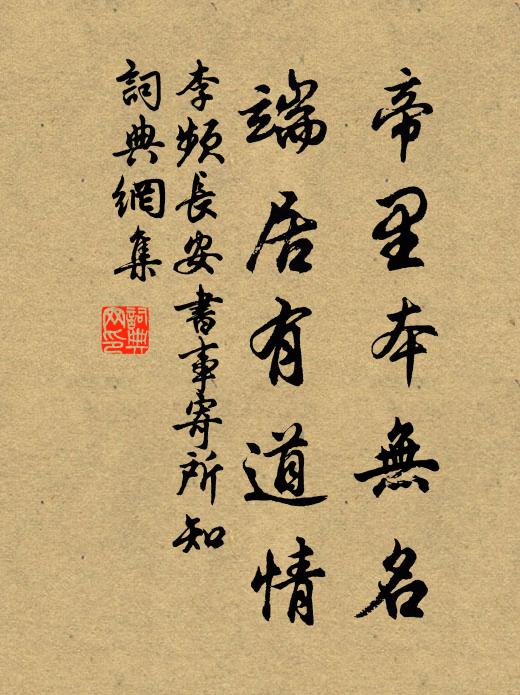 帝里本無名
端居有道情
李頻長安書事寄所知
詞典網集
詞典网印